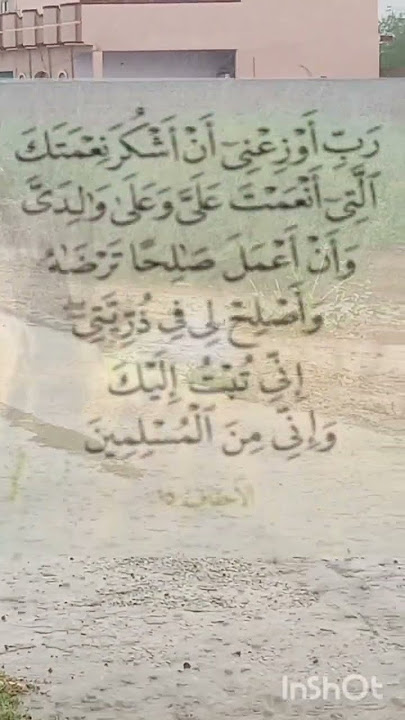 رَبِّ أَوْزِعْنِىٓ أَنْ أَشْكُرَ نِعْمَتَكَ
ٱلَّتِىٓ أَنْعَمْتَ عَلَىَّ وَعَلَىٰ وَٰلِدَىَّ
وَأَنْ أَعْمَلَ صَٰلِحًا تَرْضَىٰهُ
وَأَصْلِحْ لِى فِى ذُرِّيَّتِىٓ
إِنِّى تُبْتُ إِلَيْكَ
وَإِنِّى مِنَ ٱلْمُسْلِمِينَ
الأحقاف: ١٥
InShOt